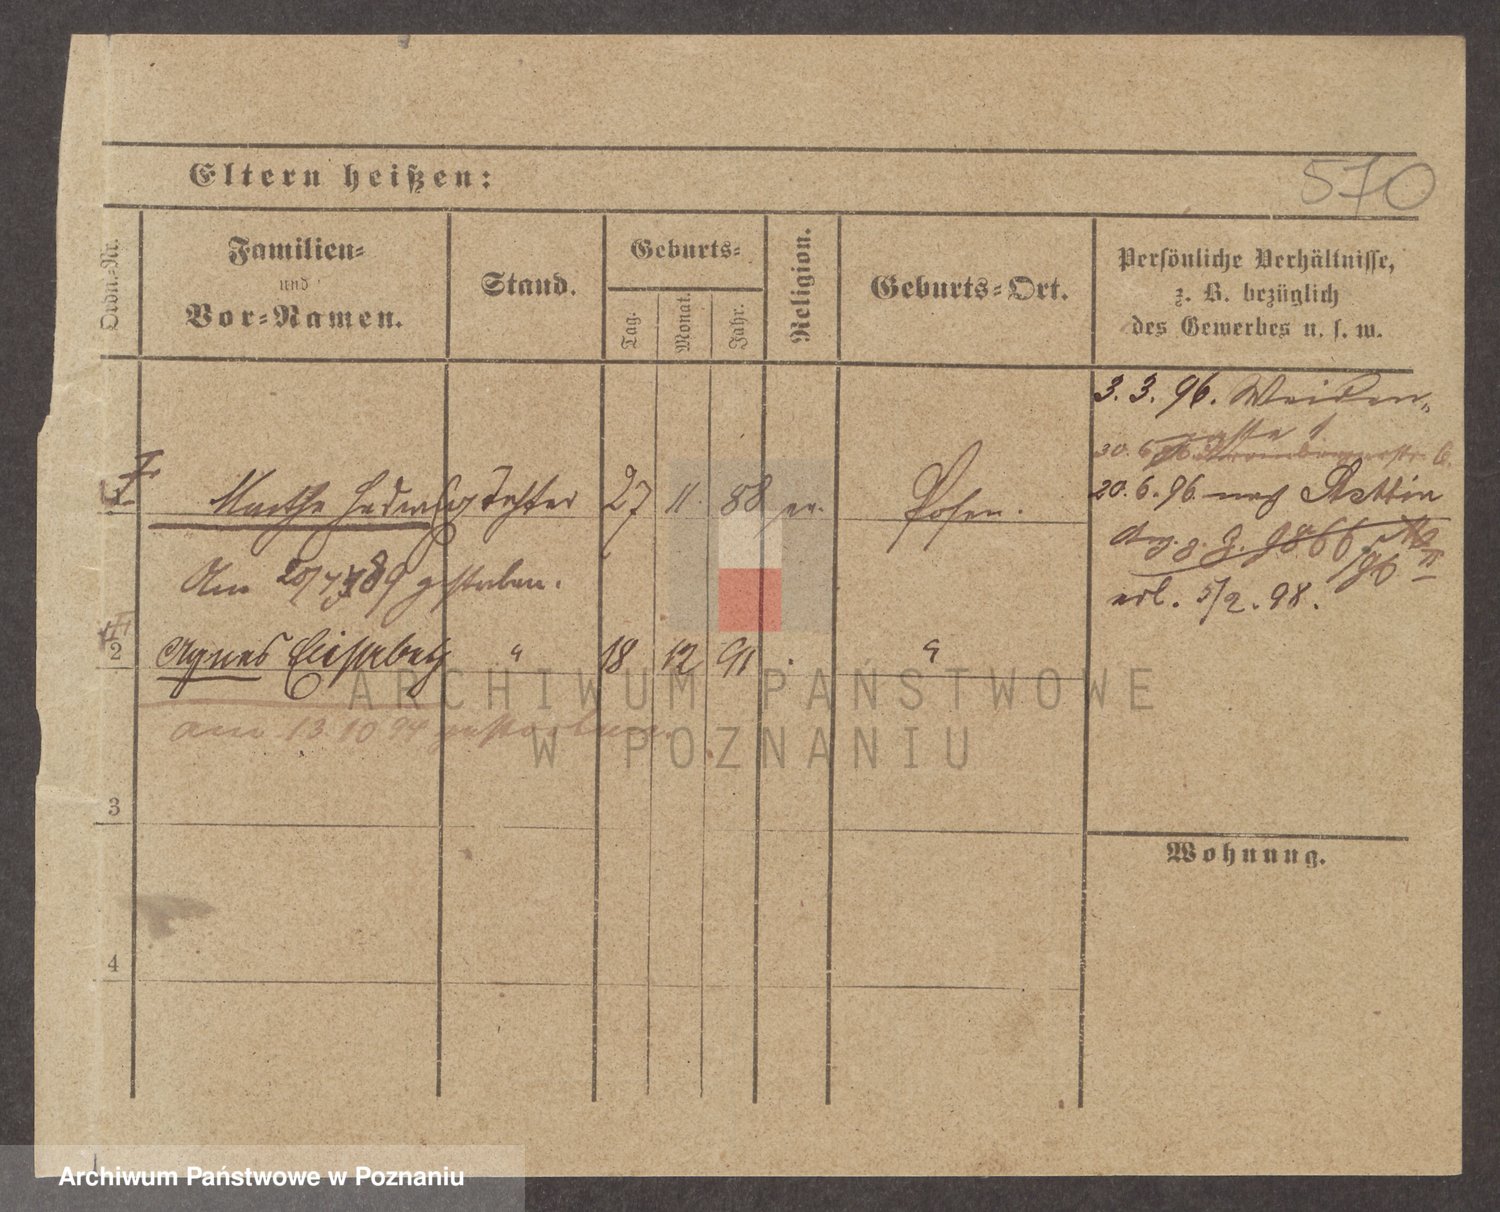 570
Eltern heißen:
Ordn-Nr.
Familien-
und
Vor-Namen.
Stand.
Geburts-
Tag.
Monat.
Jahr.
Religion.
Geburts-Ort.
Persönliche Verhältnisse,
z. B. bezüglich
des Gewerbes u. s. w.
3. 3. 96. Weiden-
gasse
30. 6.
Martha Hedwig Tochter 27 11. 88 ev. Posen.
20. 6. 96 nach Stettin
Am 20/7 89 gestorben.
erl. 5/2. 98.
2 Agnes Elisabeth " 18 12 91 "
am 13 10 94 gestorben.
3
Wohnung.
4
ARCHIWUM PAŃSTWOWE
W POZNANIU
Archiwum Państwowe w Poznaniu